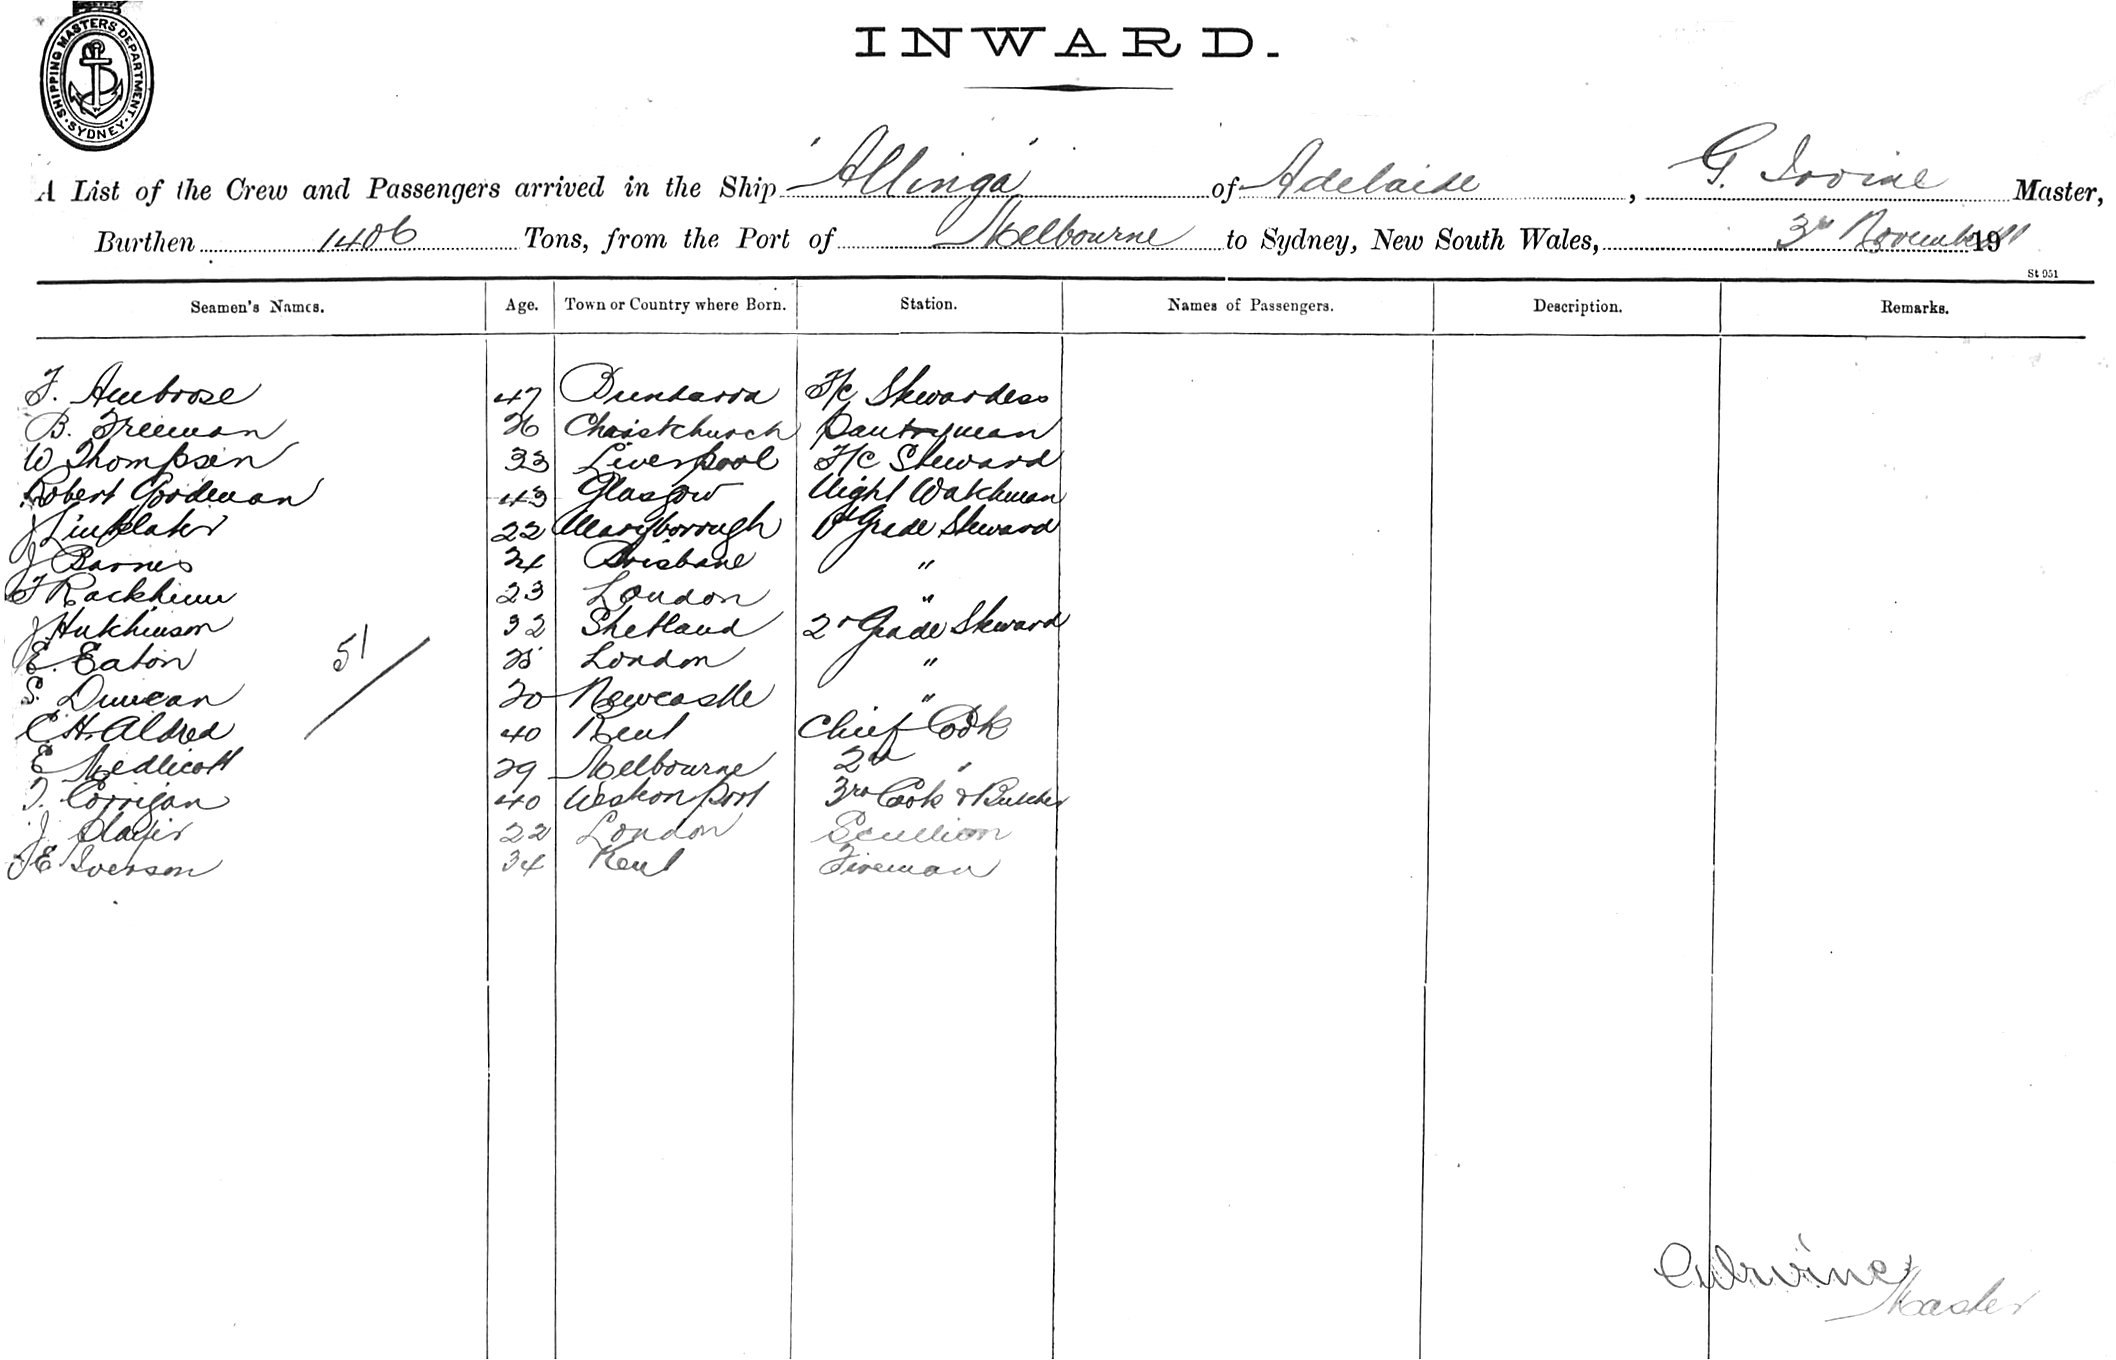 SHIPPING MASTERS DEPARTMENT. SYDNEY.
INWARD.
A List of the Crew and Passengers arrived in the Ship 'Allinga' of Adelaide, G. Irvine Master,
Burthen 1406 Tons, from the Port of Melbourne to Sydney, New South Wales, 3rd November 1911
St 951
Seamen's Names. Age. Town or Country where Born. Station. Names of Passengers. Description. Remarks.
F. Ambrose 47 Bundarra F/c Stewardess
B. Freeman 26 Christchurch Pantryman
W Thompson 33 Liverpool F/c Steward
Robert Goodman 43 Glasgow Night Watchman
J Linklater 22 Maryborough 1st Grade Steward
J Barnes 24 Brisbane "
F Rackhim 23 London "
J Hutchinson 32 Shetland 2nd Grade Steward
E. Eaton 25 London "
S. Duncan 20 Newcastle "
C. H. Aldred 40 Kent Chief Cook
E Medlicott 29 Melbourne 2nd "
T. Corrigan 40 Weston port 3rd Cook & Butcher
J. Slayer 22 London Scullion
J E Iverson 34 Kent Fireman
51
Irvine
Master